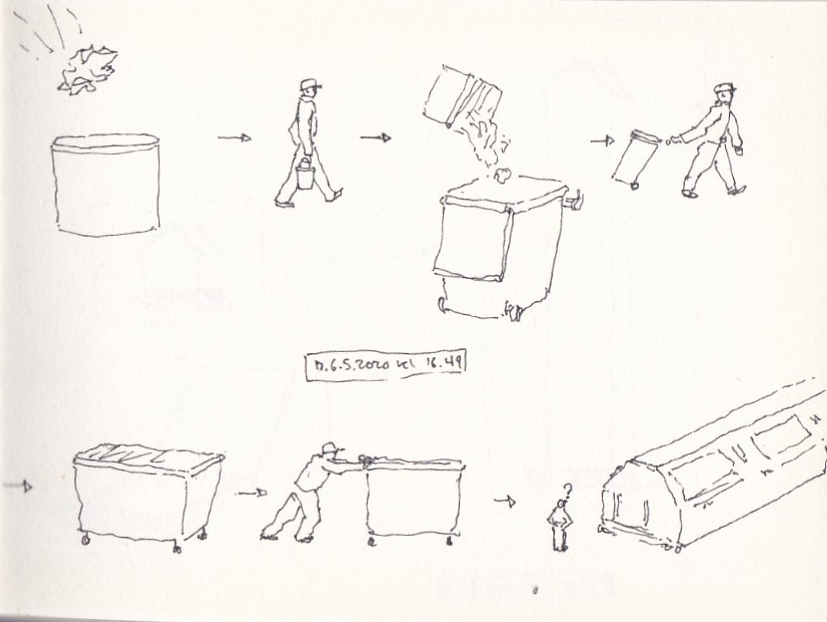 6.5.2020 kl 16.49
?